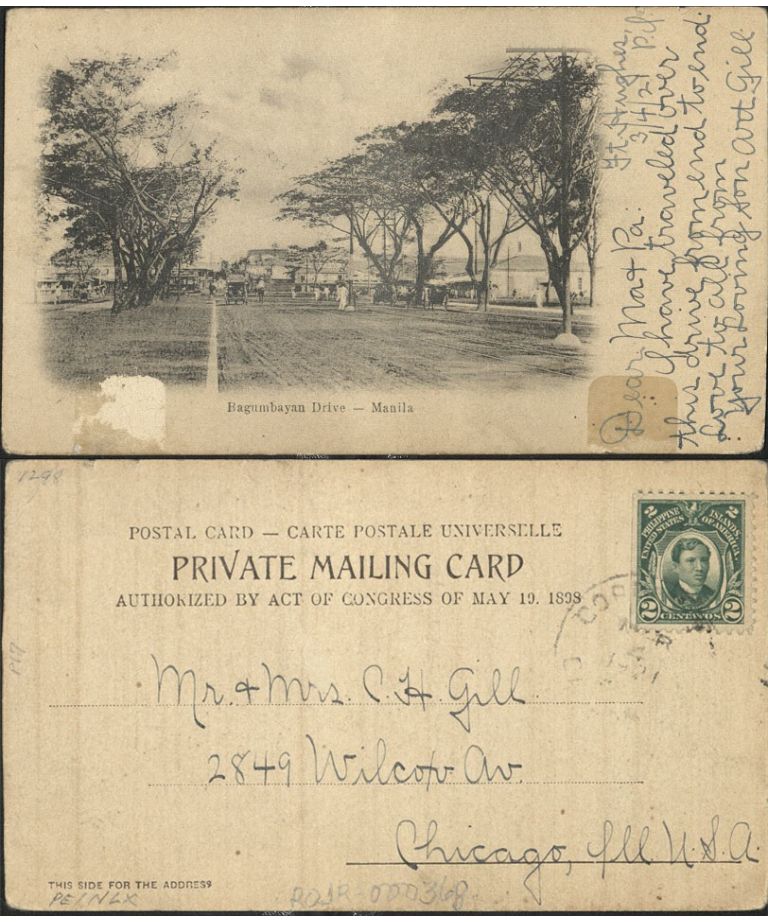 Ft. Hughes, P.I.
3/4/21
Dear Ma & Pa:
I have traveled over
this drive from end to end.
Love to all from
Your loving son Art Gill
Bagumbayan Drive — Manila
1298
POSTAL CARD — CARTE POSTALE UNIVERSELLE
PRIVATE MAILING CARD
AUTHORIZED BY ACT OF CONGRESS OF MAY 19, 1898
2 2
PHILIPPINE ISLANDS
UNITED STATES OF AMERICA
2 CENTAVOS 2
Mr. & Mrs. C H Gill
2849 Wilcox Av.
Chicago, Ill U.S.A.
THIS SIDE FOR THE ADDRESS